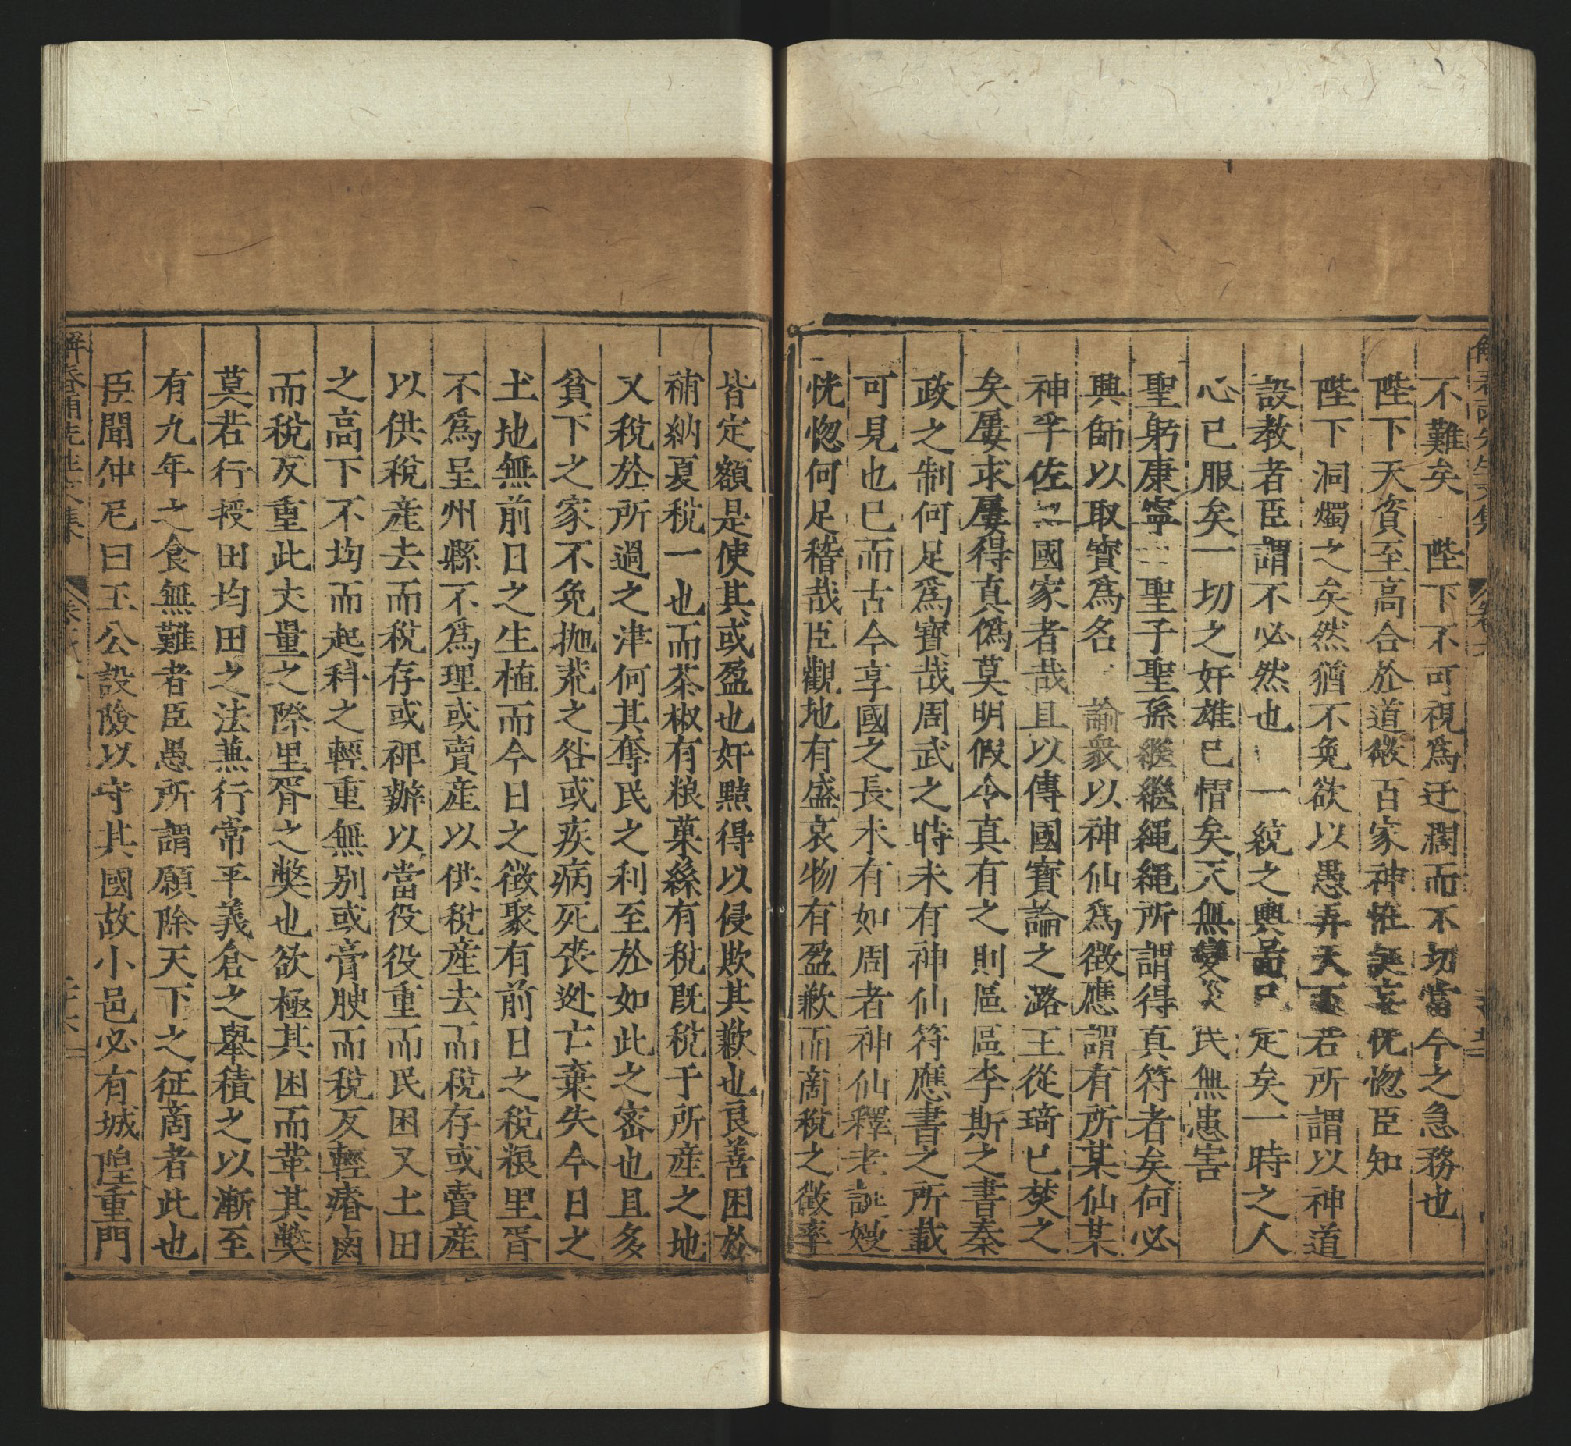 不難矣 陛下不可視爲迂濶而不切當今之急務也
陛下天資至高合於道嚴百家神恠誕妄恍惚臣知
陛下洞燭之矣然猶不免欲以愚弄天下若所謂以神道
設教者臣謂不必然也 一統之輿啚已定矣一時之人
心已服矣一切之奸雄已慴矣天無變災民無患害
聖躬康寧 聖子聖孫繼繼繩繩所謂得真符者矣何必
興師以取寳爲名 諭衆以神仙爲徵應謂有所某仙某
神孚佐 國家者哉且以傳國寳論之潞王從琦已焚之
矣屢求屢得真僞莫明假令真有之則區區李斯之書秦
政之制何足爲寳哉周武之時未有神仙符應書之所載
可見也已而古今享國之長未有如周者神仙釋老誕嫚
恍惚何足稽哉臣觀地有盛衰物有盈歉而商稅之徵率
皆定額是使其或盈也奸黠得以侵欺其歉也良善困於
補納夏稅一也而茶椒有粮菓絲有稅既稅于所産之地
又稅於所過之津何其奪民之利至於如此之密也且多
貧下之家不免抛荒之咎或疾病死喪逃亡棄失今日之
土地無前日之生植而今日之徵聚有前日之稅粮里胥
不爲呈州縣不爲理或賣産以供稅産去而稅存或賣産
以供稅産去而稅存或裨辦以當役役重而民困又土田
之高下不均而起科之輕重無别或膏腴而稅反輕瘠鹵
而稅反重此丈量之際里胥之獘也欲極其困而革其獘
莫若行授田均田之法兼行常平義倉之舉積之以漸至
有九年之食無難者臣愚所謂願除天下之征商者此也
臣聞仲尼曰王公設險以守其國故小邑必有城隍重門